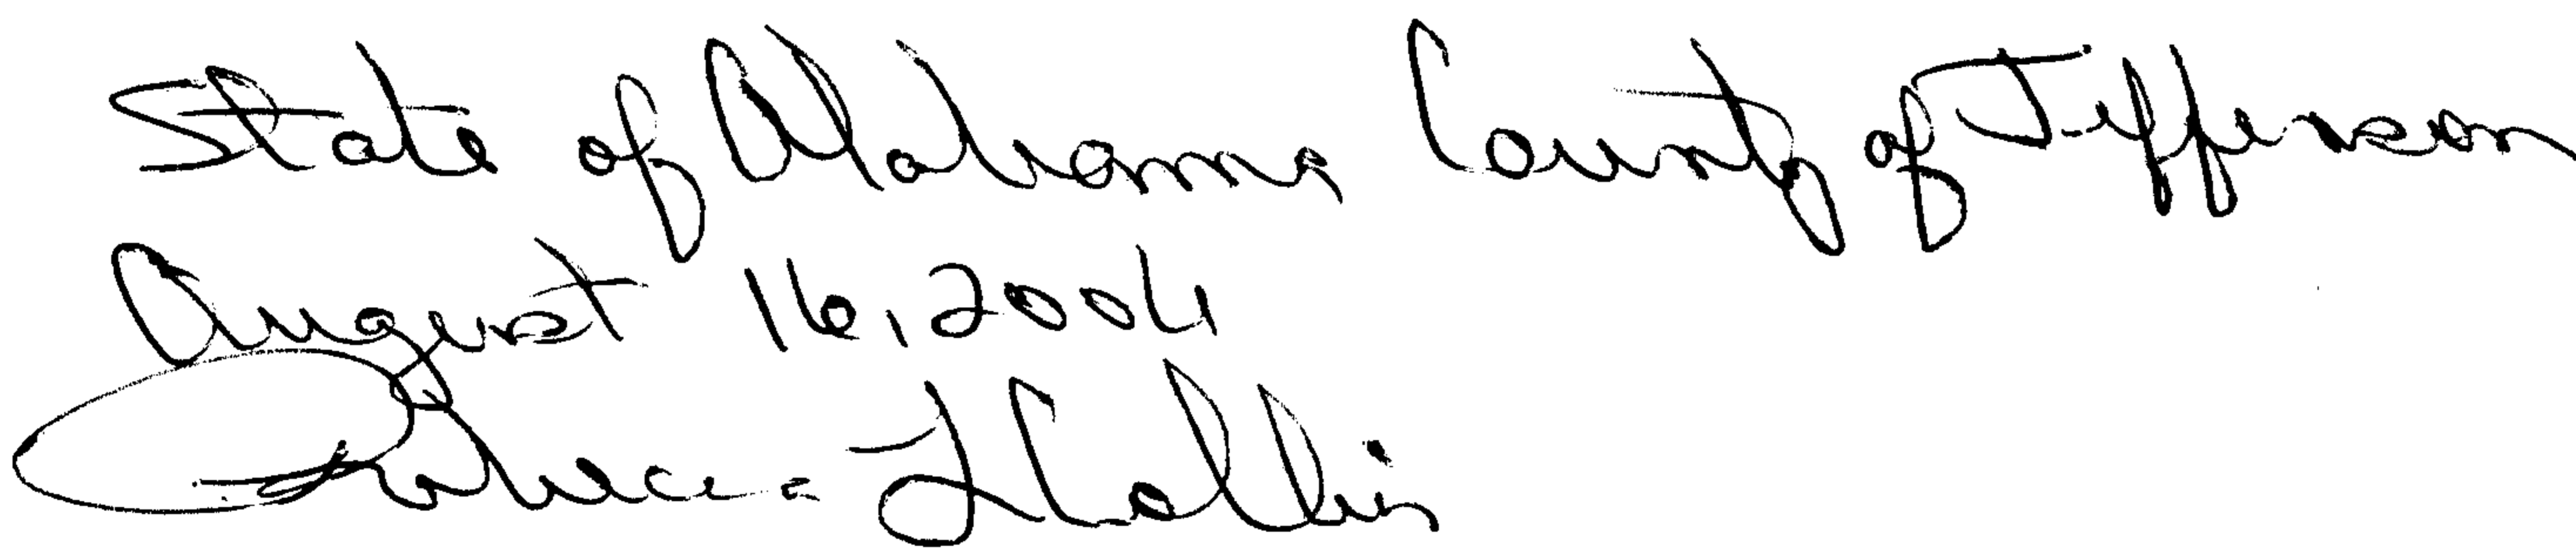 State of Alabama County of Jefferson
August 16, 2004
Rebecca L Collin